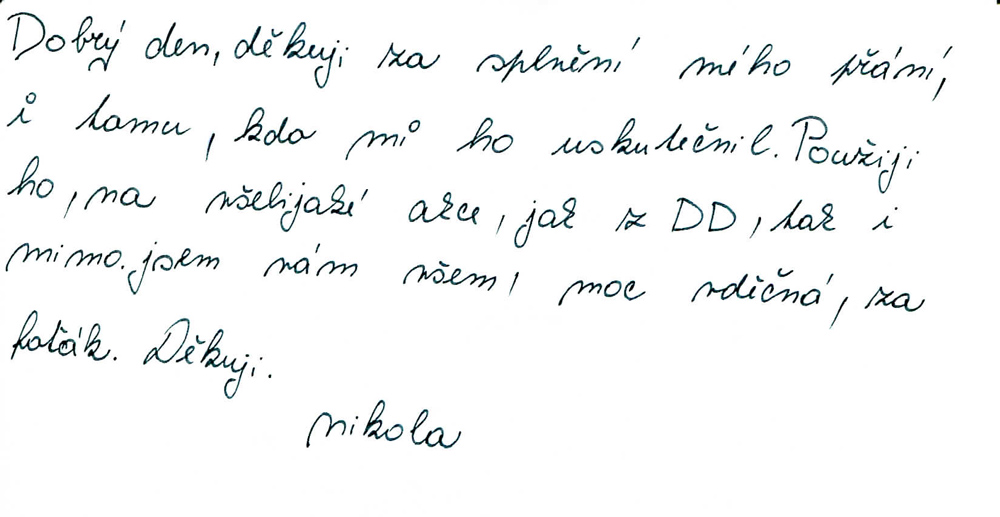 Dobrý den, děkuji za splnění mého přání,
i tomu, kdo mi ho uskutečnil. Použiji
ho, na všelijaké akce, jak z DD, tak i
mimo. jsem vám všem, moc vděčná, za
foťák. Děkuji.
nikola